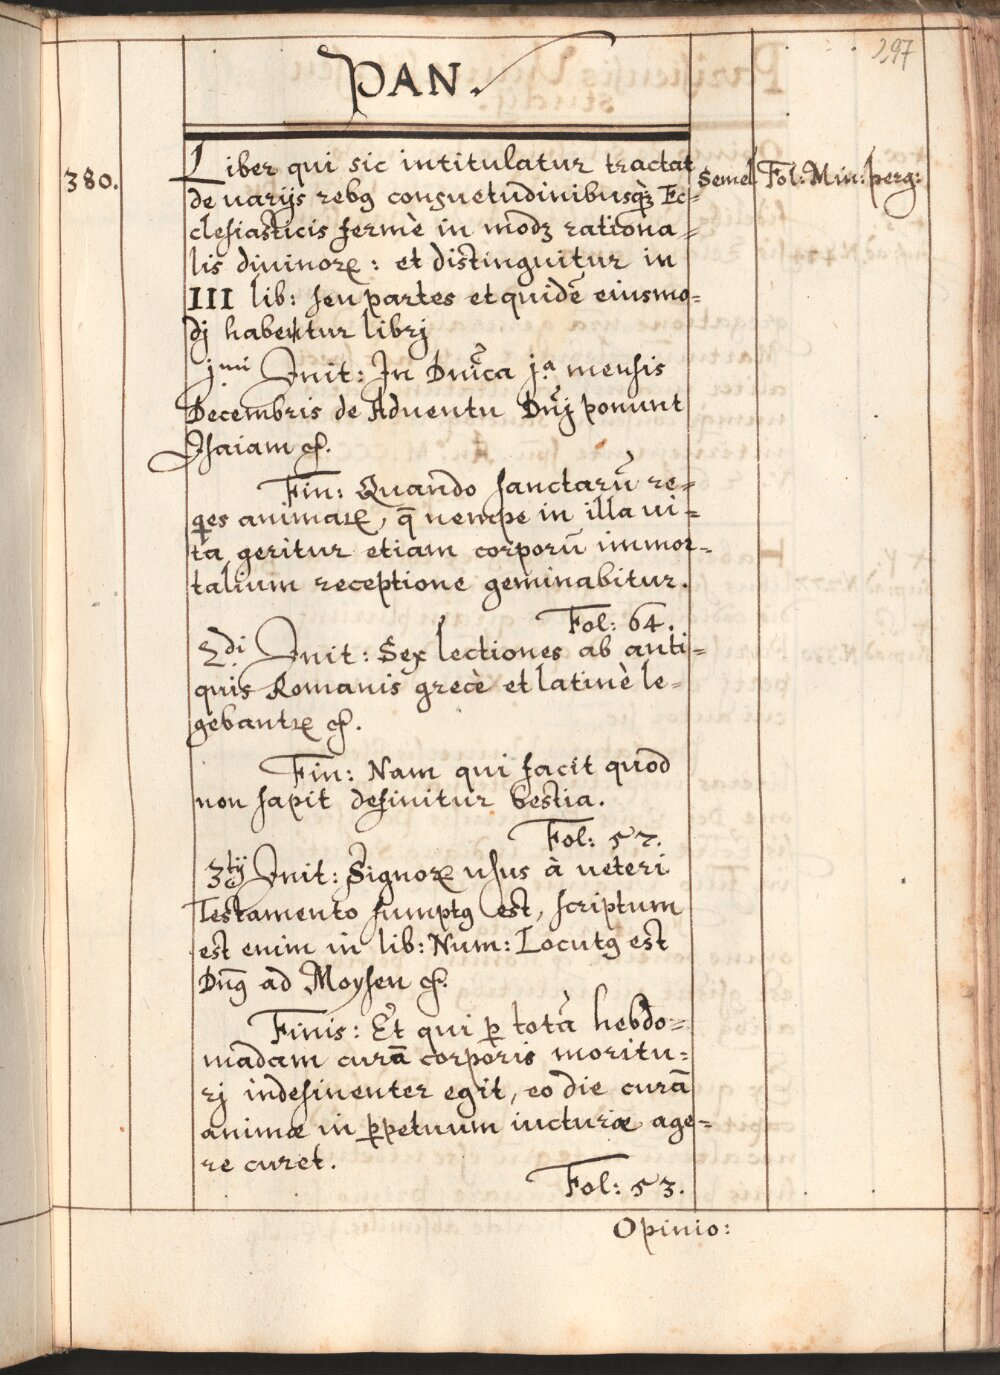 297
PAN.
380.
Liber qui sic intitulatur tractat
de uarijs rebꝯ consuetudinibusqꝫ Ec=
clesiasticis fermè in modꝫ rationa=
lis diuinorꝝ: et distinguitur in
III lib: seu partes et quidē eiusmo=
dj habentur librj
Semel.
Fol: Min: perg:
jmi Init: In Dnica ja mensis
Decembris de Aduentu Dnj ponunt
Isaiam &.
Fin: Quando sanctarū re=
qes animarꝝ, q̄ nempe in illa ui=
ta geritur etiam corporū immor=
talium receptione geminabitur.
Fol: 64.
2di Init: Sex lectiones ab anti=
quis Romanis grecè et latinè le=
gebantꝝ &.
Fin: Nam qui facit quod
non sapit definitur bestia.
Fol: 57.
3tij Init: Signorꝝ usus à ueteri
Testamento sumptꝯ est, scriptum
est enim in lib: Num: Locutꝯ est
Dnꝯ ad Moysen &.
Finis: Et qui ꝑ totā hebdo=
madam curā corporis moritu=
rj indesinenter egit, eo die curā
animæ in ꝑpetuum uicturæ age=
re curet.
Fol: 53.
Opinio: